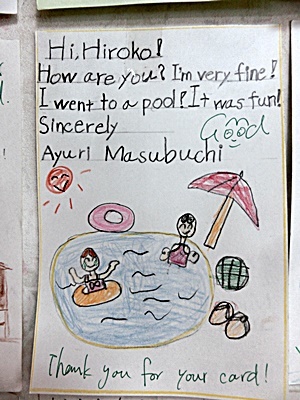 Hi, Hiroko!
How are you? I'm very fine!
I went to a pool! It was fun!
Sincerely
Good
Ayuri Masubuchi
Thank you for your card!